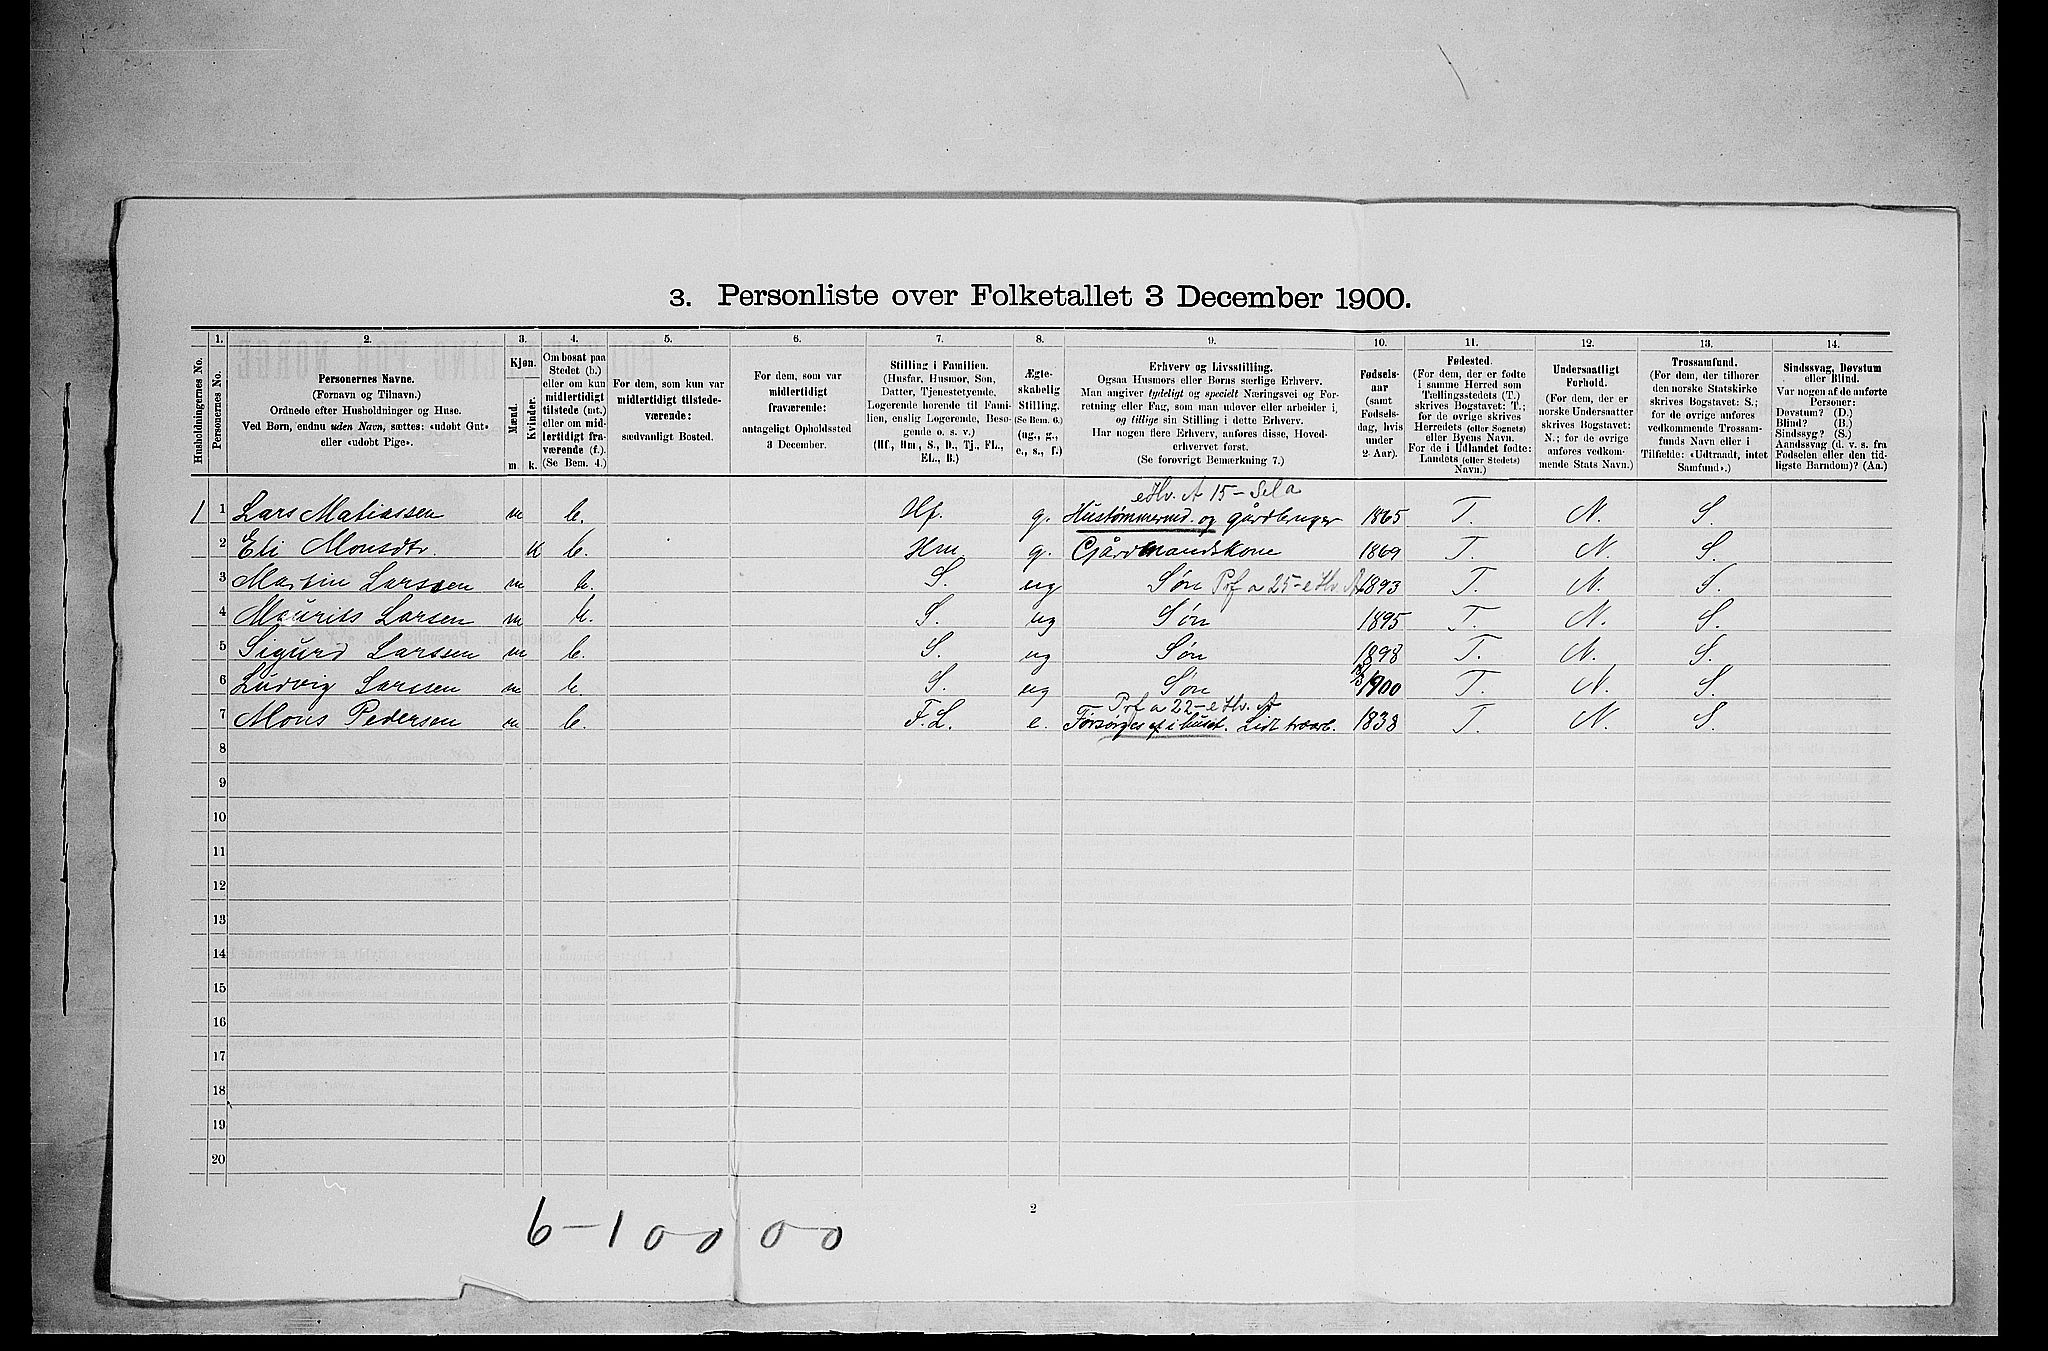 3. Personliste over Folketallet 3 December 1900.
1. 2. 3. 4. 5. 6. 7. 8. 9. 10. 11. 12. 13. 14.
Husholdningernes No.
Personernes No.
Personernes Navne.
(Fornavn og Tilnavn.)
Ordnede efter Husholdninger og Huse.
Ved Børn, endnu uden Navn, sættes: «udøbt Gut»
eller «udøbt Pige».
Kjøn.
Mænd.
Kvinder.
m. k.
Om bosat paa
Stedet (b.)
eller om kun
midlertidigt
tilstede (mt.)
eller om mid-
lertidigt fra-
værende (f.).
(Se Bem. 4.)
For dem, som kun var
midlertidigt tilstede-
værende:
sædvanligt Bosted.
For dem, som var
midlertidigt
fraværende:
antageligt Opholdssted
3 December.
Stilling i Familien.
(Husfar, Husmor, Søn,
Datter, Tjenestetyende,
Logerende hørende til Fami-
lien, enslig Logerende, Besø-
gende o. s. v.)
(Hf., Hm., S., D., Tj., FL.,
EL., B.)
Ægte-
skabelig
Stilling.
(Se Bem. 6.)
(ug., g.,
e., s., f.)
Erhverv og Livsstilling.
Ogsaa Husmors eller Børns særlige Erhverv.
Man angiver tydeligt og specielt Næringsvei og For-
retning eller Fag, som man udøver eller arbeider i,
og tillige sin Stilling i dette Erhverv.
Har nogen flere Erhverv, anføres disse, Hoved-
erhvervet først.
(Se forøvrigt Bemærkning 7.)
Fødsels-
aar
(samt
Fødsels-
dag, hvis
under
2 Aar).
Fødested.
(For dem, der er fødte
i samme Herred som
Tællingsstedets (T.)
skrives Bogstavet: T.;
for de øvrige skrives
Herredets (eller Sognets)
eller Byens Navn.
For de i Udlandet fødte:
Landets (eller Stedets)
Navn.)
Undersaatligt
Forhold.
(For dem, der er
norske Undersaatter
skrives Bogstavet:
N.; for de øvrige
anføres vedkom-
mende Stats Navn.)
Trossamfund.
(For dem, der tilhører
den norske Statskirke
skrives Bogstavet: S.;
for de øvrige anføres
vedkommende Trossam-
funds Navn eller i
Tilfælde: «Udtraadt, intet
Samfund».)
Sindssvag, Døvstum
eller Blind.
Var nogen af de anførte
Personer:
Døvstum? (D.)
Blind? (B.)
Sindssyg? (S.)
Aandssvag (d. v. s. fra
Fødselen eller den tid-
ligste Barndom)? (Aa.)
eHv. A 15 – Sela
1 1 Lars Matiassen m b. Hf. g. Hustømmermd. og gårdbruger 1865 T. N. S.
2 Eli Monsdtr. K b. Hm g. Gjårdmandskone 1869 T. N. S.
3 Martin Larssen m b. S. ug Søn Pf a 25 – eHv. A 1893 T. N. S.
4 Maurits Larsen m b. S. ug Søn 1895 T. N. S.
5 Sigurd Larssen m b. S. ug Søn 1898 T. N. S.
6 Ludvig Larssen m b. S. ug Søn 1900 T. N. S.
Pf a 22 – eHv. A
7 Mons Pedersen m b. F.L. e. Forsørges af i huset. Lidt træarb. 1838 T. N. S
8
9
10
11
12
13
14
15
16
17
18
19
20
2
6–100 00